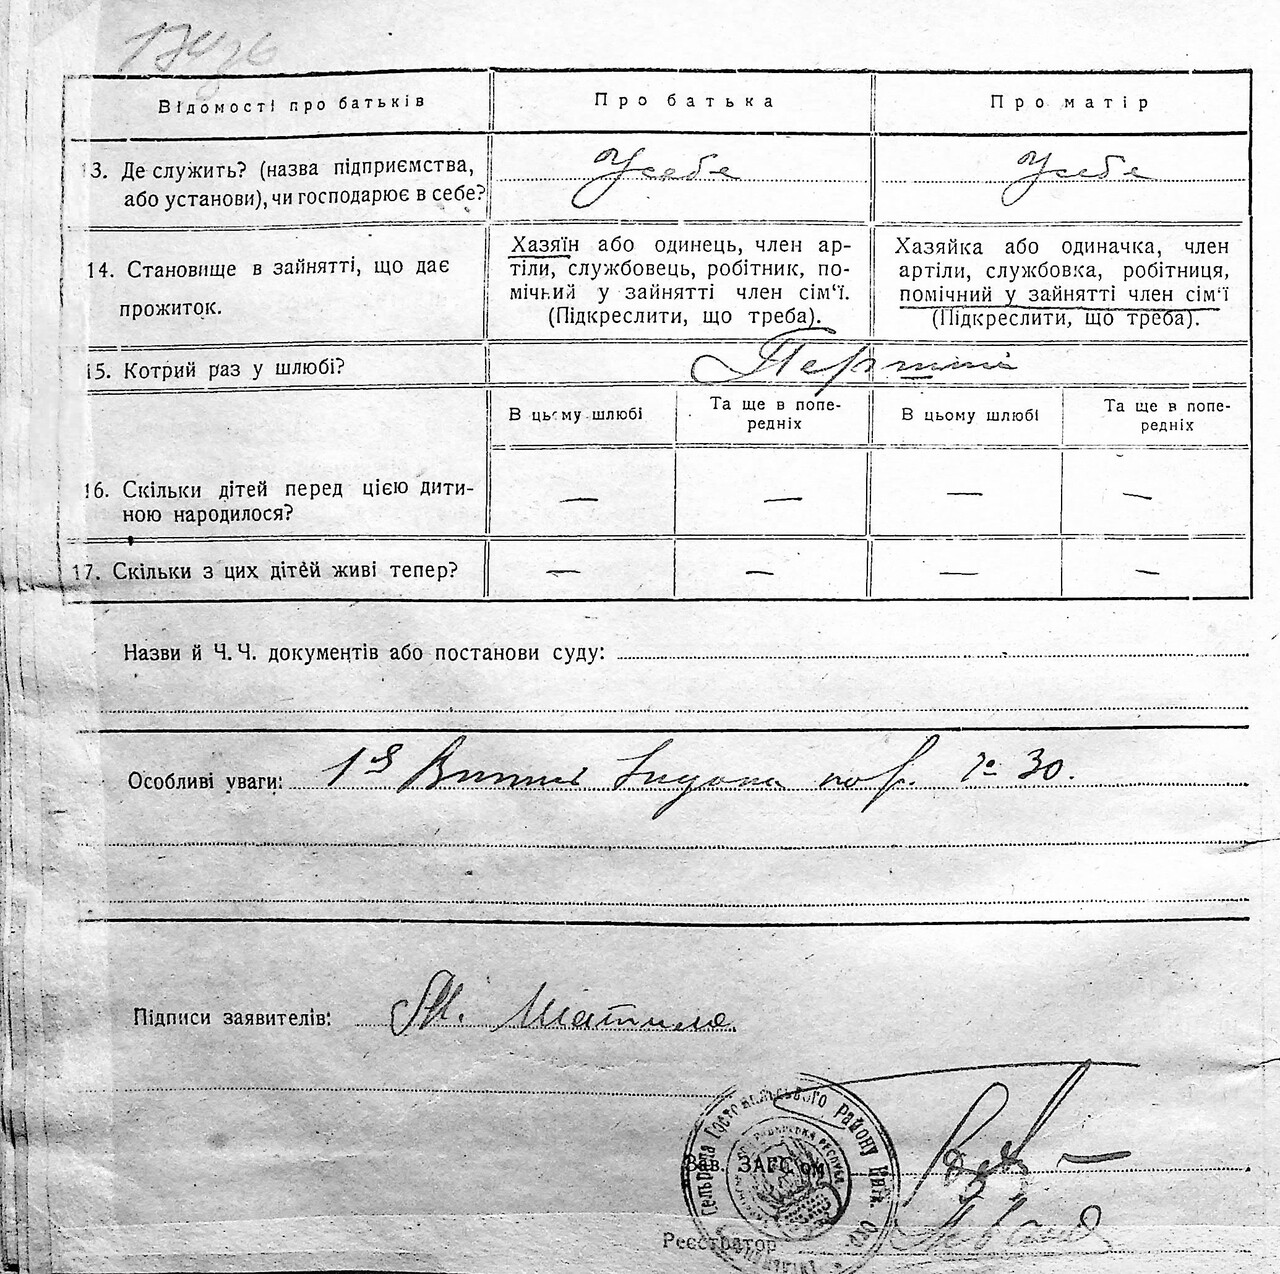 Відомості про батьків Про батька Про матір
13. Де служить? (назва підприємства, або установи), чи господарює в себе? У себе У себе
14. Становище в зайнятті, що дає прожиток.
Хазяїн або одинець, член ар-
тіли, службовець, робітник, по-
мічний у зайнятті член сім'ї.
(Підкреслити, що треба).
Хазяйка або одиначка, член
артіли, службовка, робітниця,
помічний у зайнятті член сім'ї
(Підкреслити, що треба).
15. Котрий раз у шлюбі? Перший
В цьому шлюбі Та ще в попе-
редніх В цьому шлюбі Та ще в попе-
редніх
16. Скільки дітей перед цією дити-
ною народилося? — — — —
17. Скільки з цих дітей живі тепер? — — — —
Назви й Ч.Ч. документів або постанови суду:
Особливі уваги: № 30.
Підписи заявителів: Шатило
Гостомельського Району Київ. Окр.
Зав. ЗАГС'ом
Реєстратор